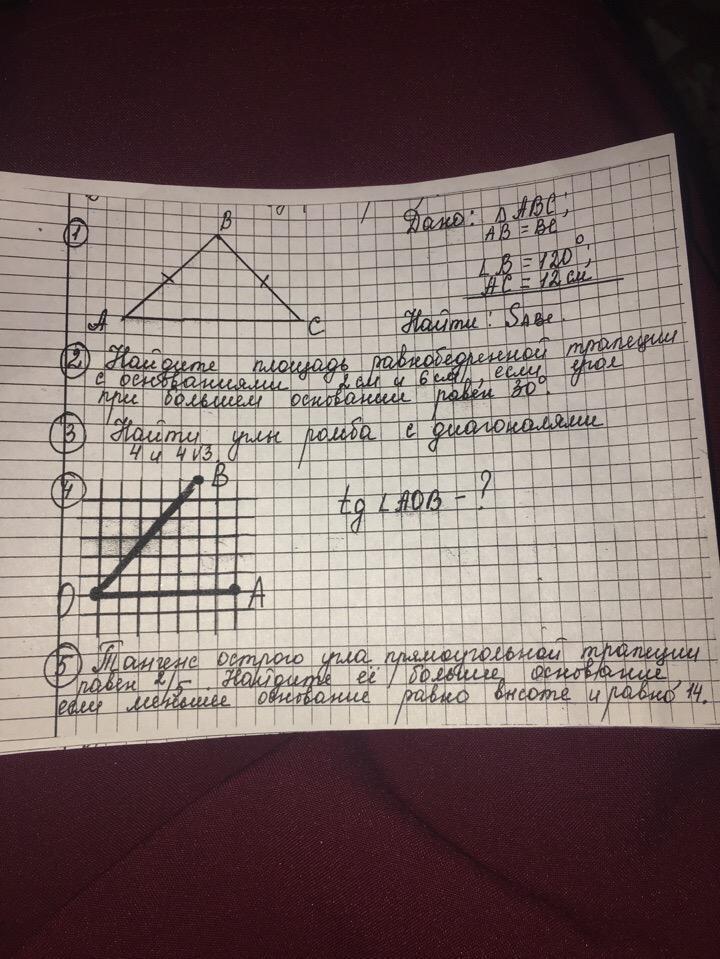 1
B
A
C
Дано: Δ ABC;
AB = BC
∠ B = 120°;
AC = 12 см
Найти: S_ABC.
2 Найдите площадь равнобедренной трапеции
с основаниями 2 см и 6 см, если угол
при большем основании равен 30°.
3 Найти углы ромба с диагоналями
4 и 4√3.
4
B
O
A
tg ∠ AOB - ?
5 Тангенс острого угла прямоугольной трапеции
равен 2/5. Найдите её большее основание,
если меньшее основание равно высоте и равно 14.